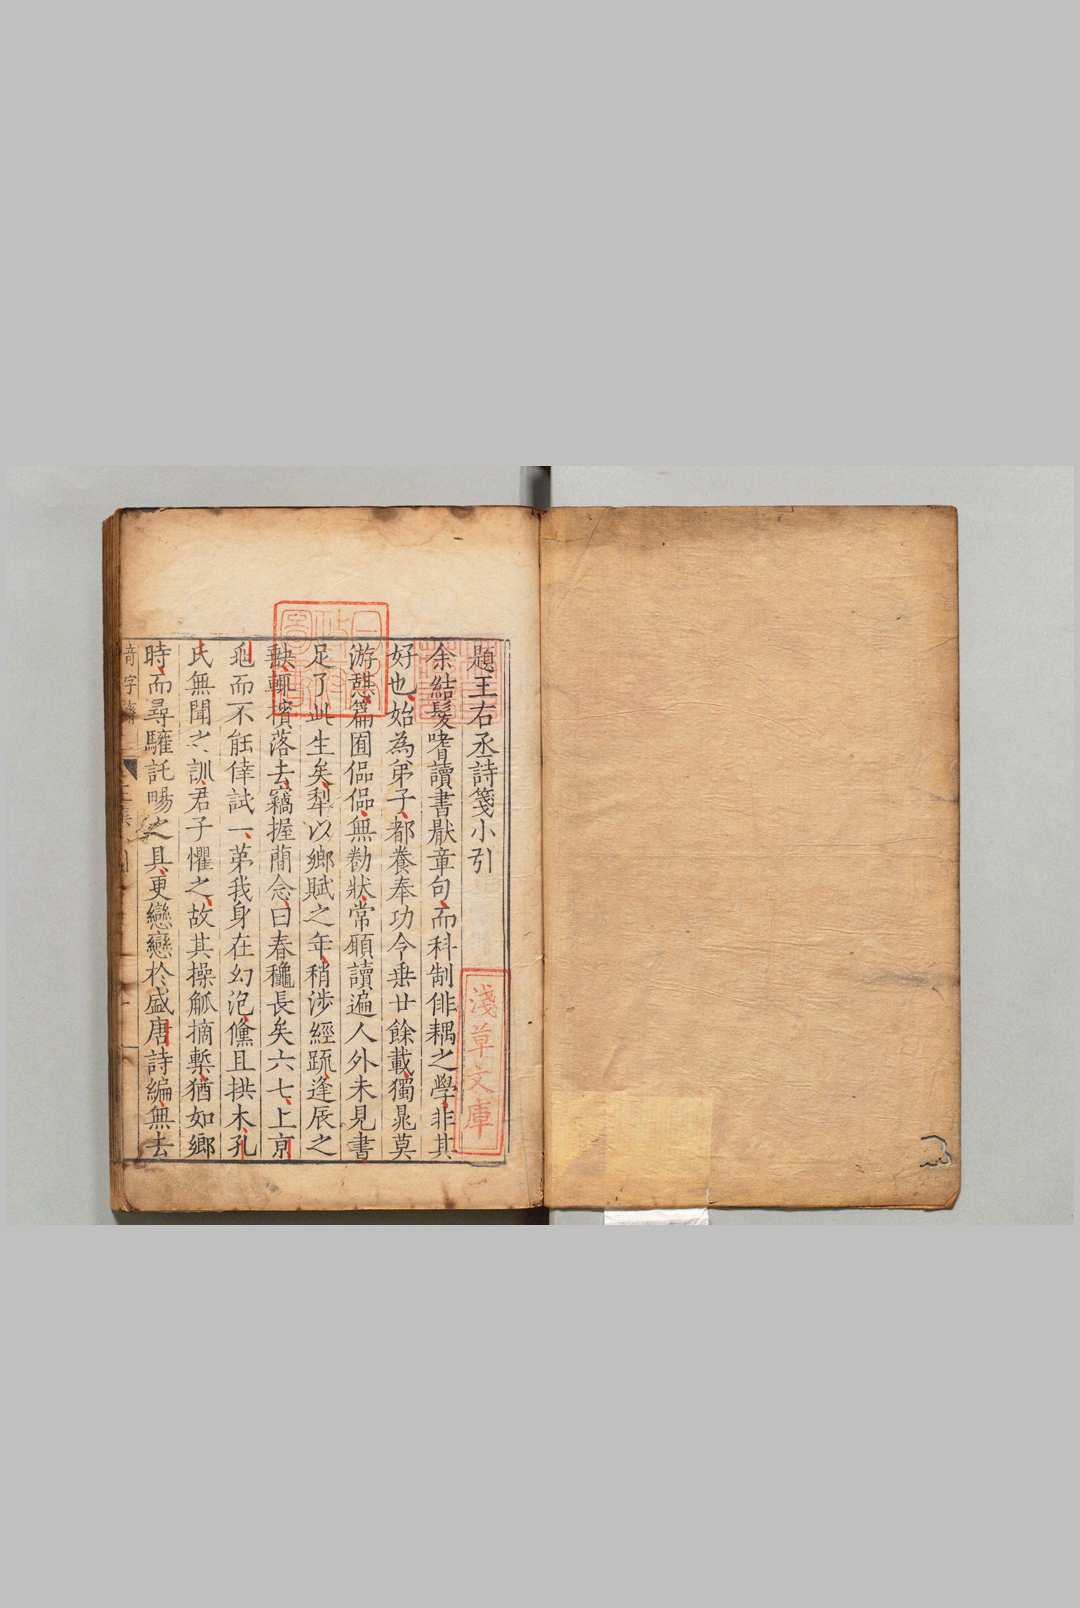 題王右丞詩箋小引
余結髮嗜讀書厭章句而科制俳耦之學非其
好也始為弟子都養奉功令垂廿餘載獨晁莫
游憇篇囿偘偘無勌狀常願讀遍人外未見書
足了此生矣犁以鄉賦之年稍涉經疏逢辰之
輒擯落去竊握蕳念曰春穐長矣六七上京
兆而不能倖試一第我身在幻泡儻且拱木孔
氏無聞之訓君子懼之故其操觚摘槧猶如鄉
時而尋驩託暢之具更戀戀於盛唐詩編無去
淺草文庫